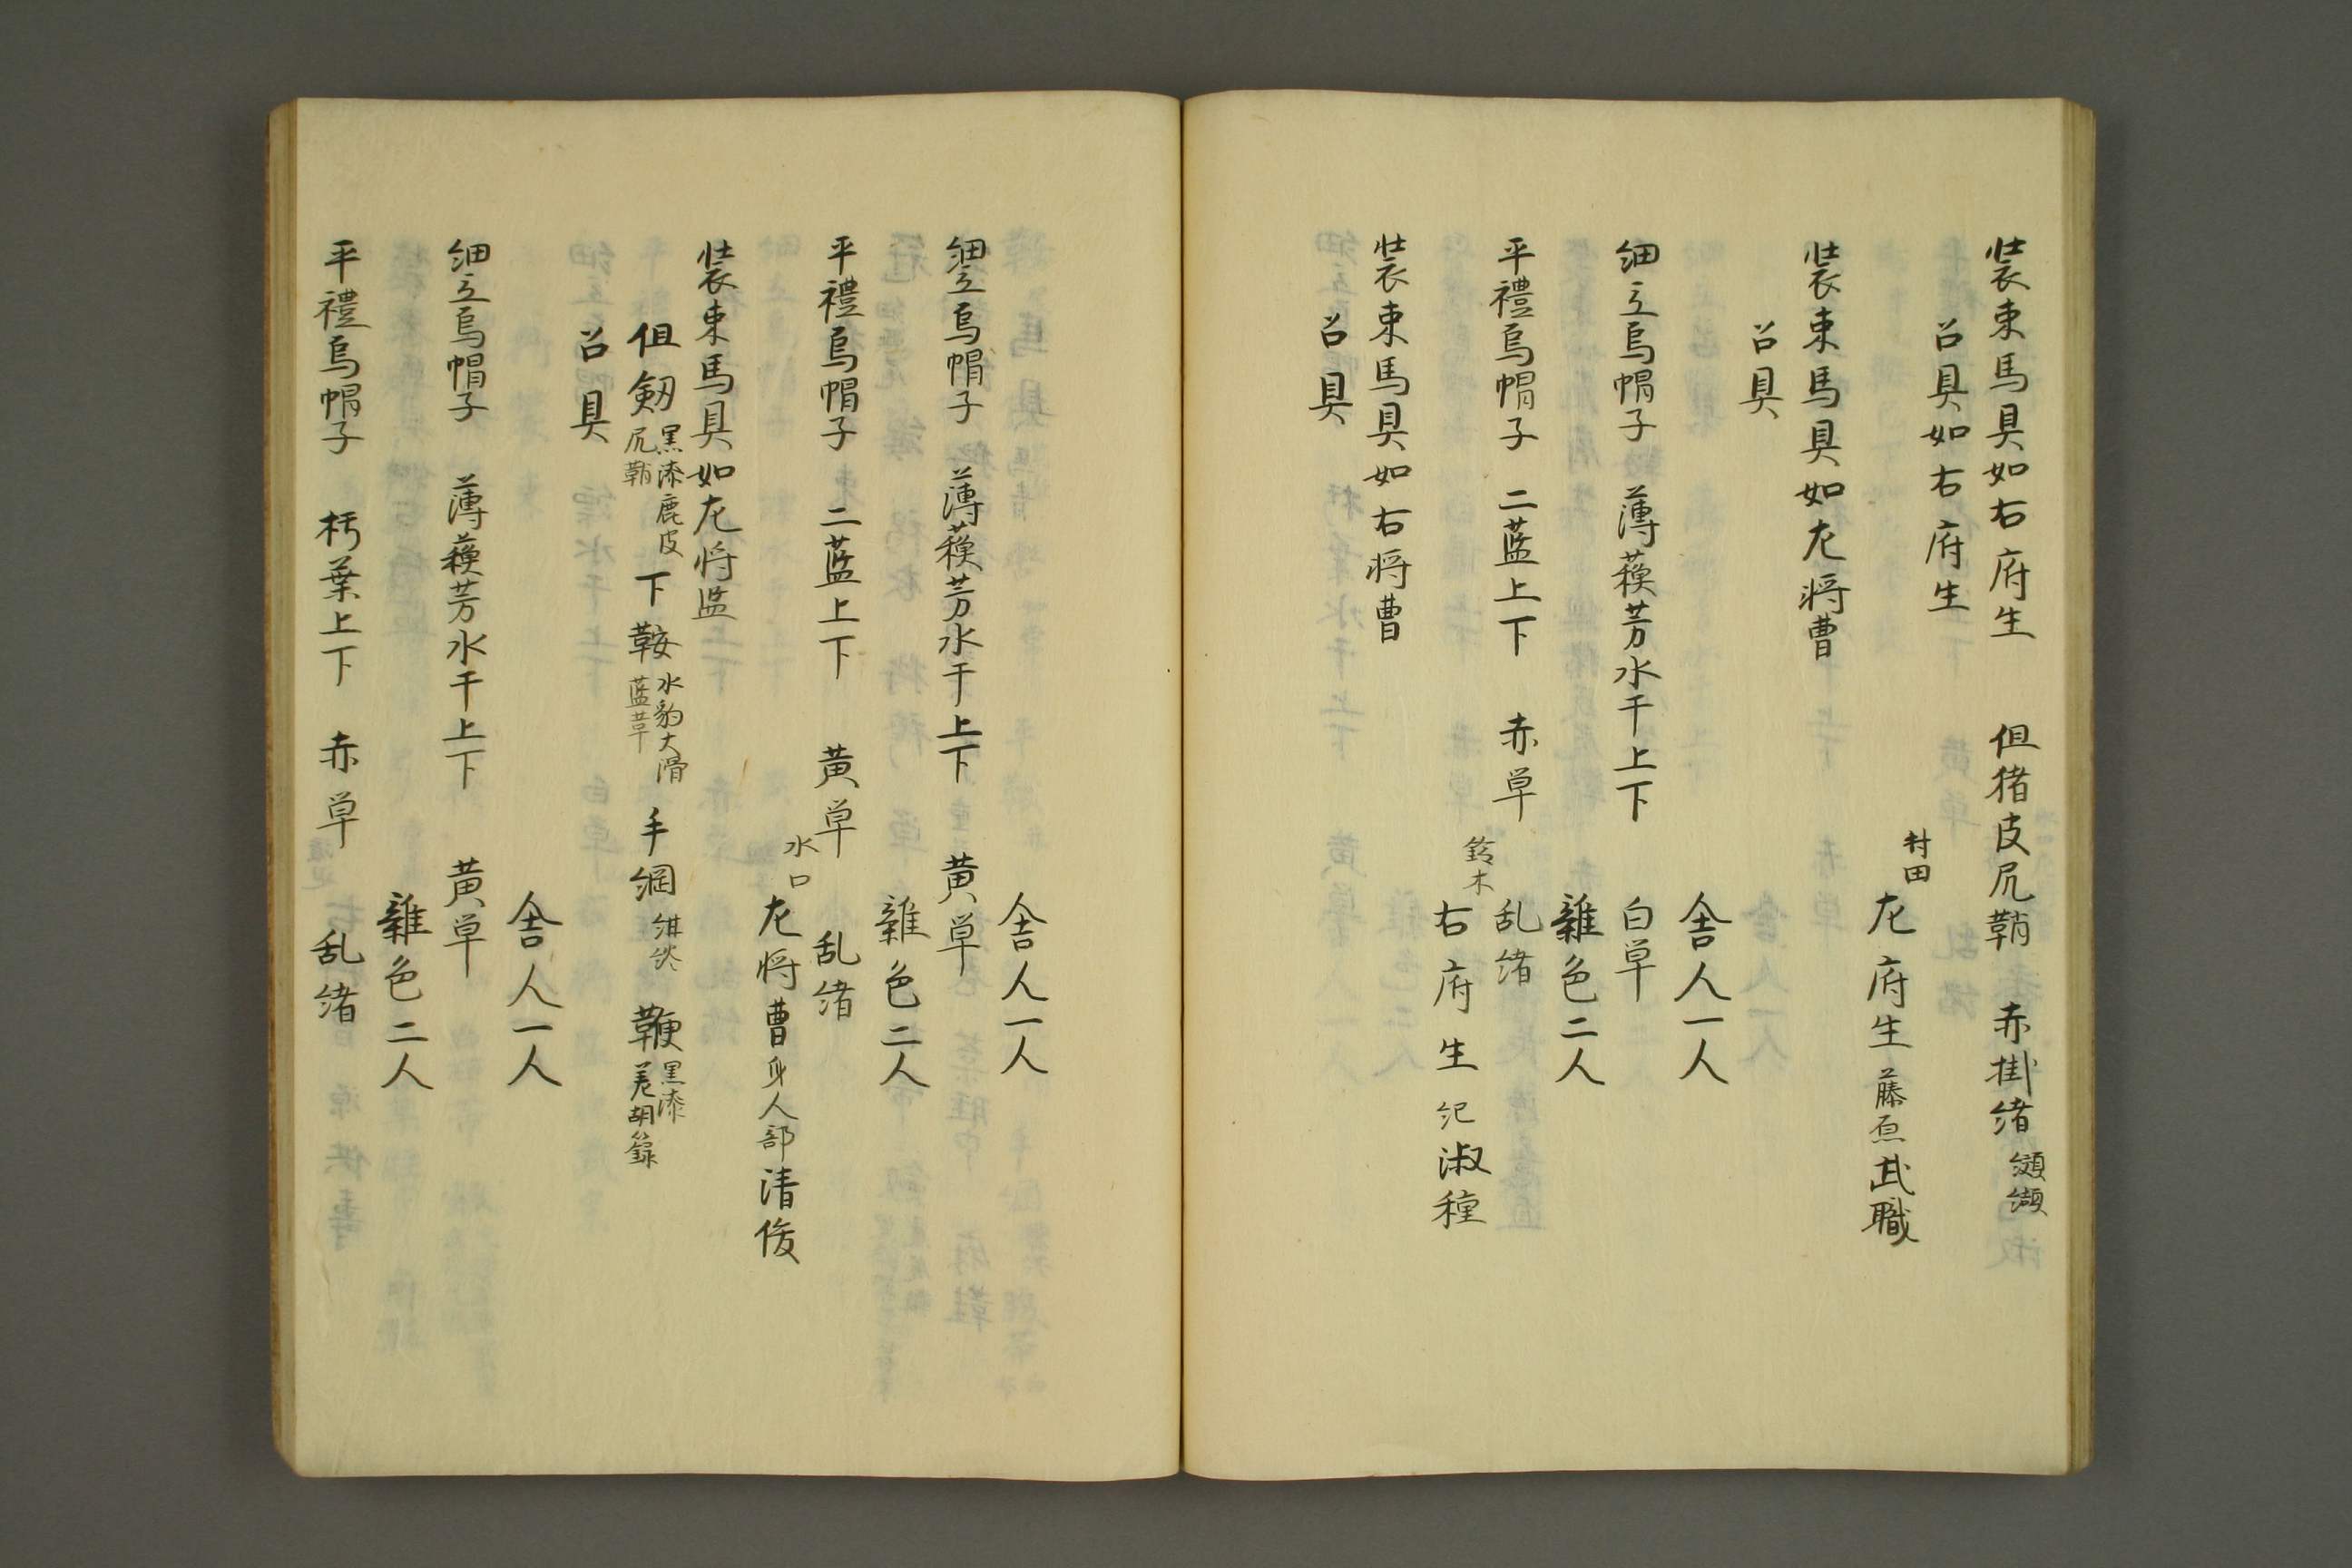 装束馬具如右府生　但猪皮尻鞘　赤掛緒纐纈
召具如右府生
村田
左府生藤原武職
装束馬具如左将曹
召具
舎人一人
細立烏帽子　薄蘓芳水干上下　白単
雑色二人
平禮烏帽子　二藍上下　赤単　乱緒
鈴木
右府生紀淑種
装束馬具如右将曹
召具
舎人一人
細立烏帽子　薄蘓芳水干上下　黄単
雑色二人
平禮烏帽子　二藍上下　黄単　乱緒
水口
左将曹身人部清俊
装束馬具如左将監
但剱黒漆鹿皮尻鞘　下鞍水豹大滑藍革　手綱紺　鞭黒漆差胡籙
召具
舎人一人
細立烏帽子　薄蘓芳水干上下　黄単
雑色二人
平禮烏帽子　朽葉上下　赤単　乱緒